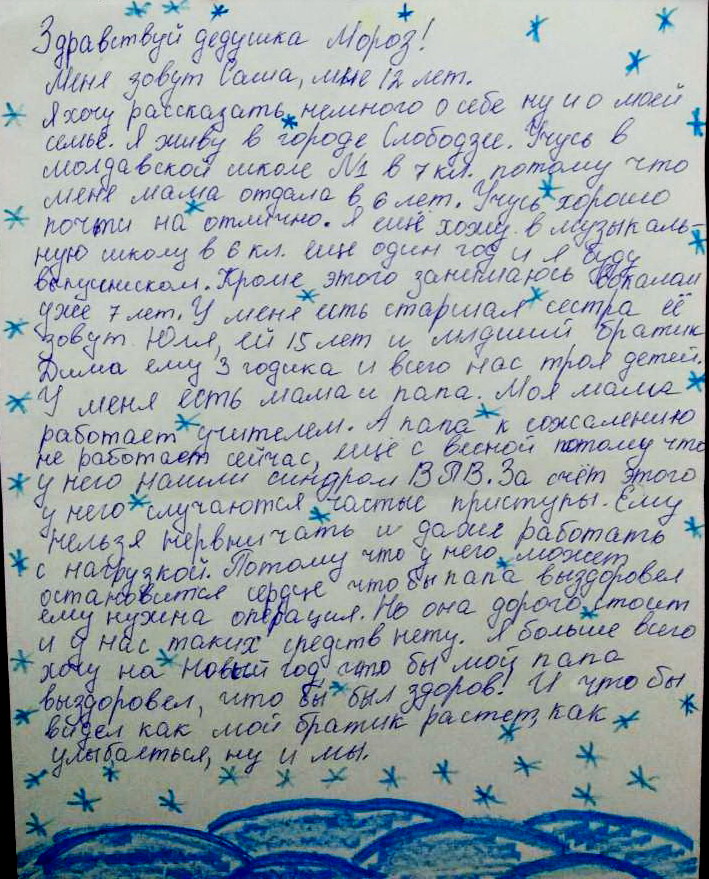 Здравствуй дедушка Мороз!
Меня зовут Саша, мне 12 лет.
Я хочу рассказать немного о себе ну и о моей
семье. Я живу в городе Слободзее. Учусь в
молдавской школе №1 в 7 кл. потому что
меня мама отдала в 6 лет. Учусь хорошо
почти на отлично. Я ещё хожу в музыкаль-
ную школу в 6 кл. еще один год и я буду
выпускником. Кроме этого занимаюсь вокалам
уже 7 лет. У меня есть старшая сестра её
зовут Юля, ей 15 лет и младший братик
Дима ему 3 годика и всего нас троя детей.
У меня есть мама и папа. Моя мама
работает учителем. А папа к сожалению
не работает сейчас, ещё с весной потому что
у него нашли синдром ВПВ. За счёт этого
у него случаются частые приступы. Ему
нельзя нервничать и даже работать
с нагрузкой. Потому что у него может
остановится сердце что бы папа выздоровел
ему нужна операция. Но она дорого стоит
и у нас таких средств нету. Я больше всего
хочу на Новый год что бы мой папа
выздоровел, что бы был здоров! И что бы
видел как мой братик растет, как
улыбаеться, ну и мы.